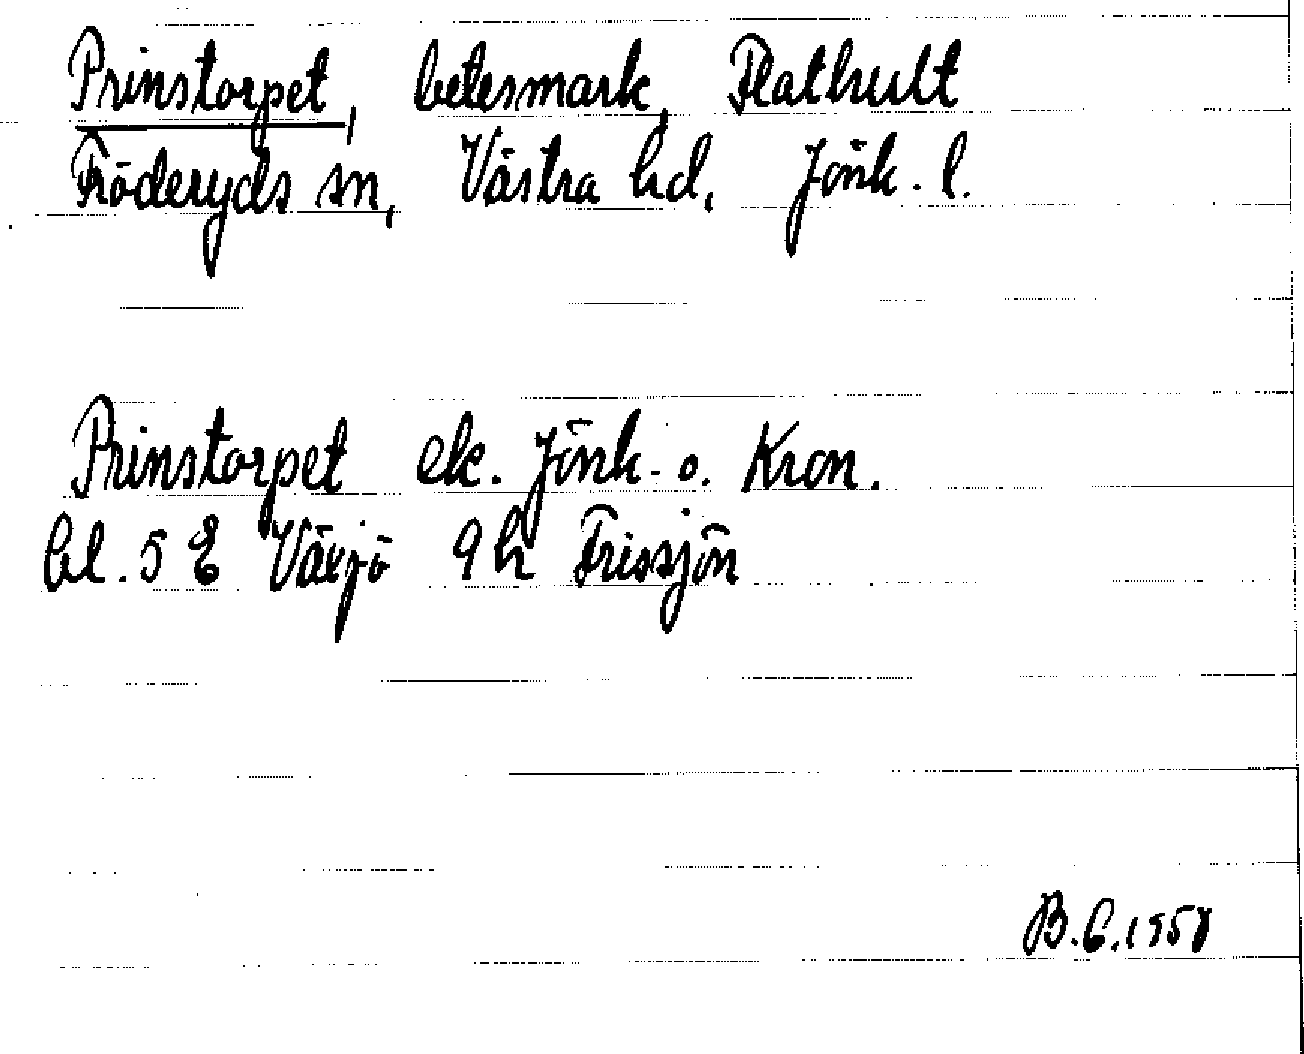 Prinstorpet, betesmark, Flathult
Fröderyds sn, Västra hd, Jönk. l.
Prinstorpet ek. Jönk. o. Kron.
bl. 5 E Växjö 9h Frissjön
B.E. 1958